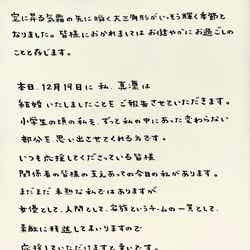 空に昇る気霜の先に瞬く大三角形がいっそう輝く季節と
なりました。皆様におかれましてはお健やかにお過ごしの
ことと存じます。
本日、12月19日に 私、真凛は
結婚いたしましたことをご報告させていただきます。
小学生の頃の私を、ずっと私の中にあった変わらない
部分を思い出させてくれる方です。
いつも応援してくださっている皆様
関係者の皆様の支えあっての今日の私があります。
まだまだ未熟な私ではありますが
女優として、人間として、家族というチームの一員として、
素敵に精進してまいりますので
応援していただけますと幸いです。